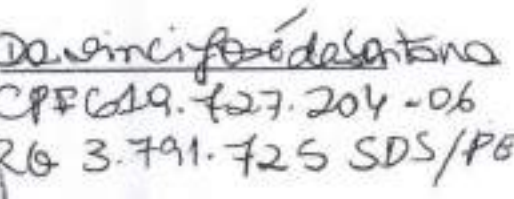 Davinci José da Santana
CPF 619.727.204-06
RG 3.791.725 SDS/PE